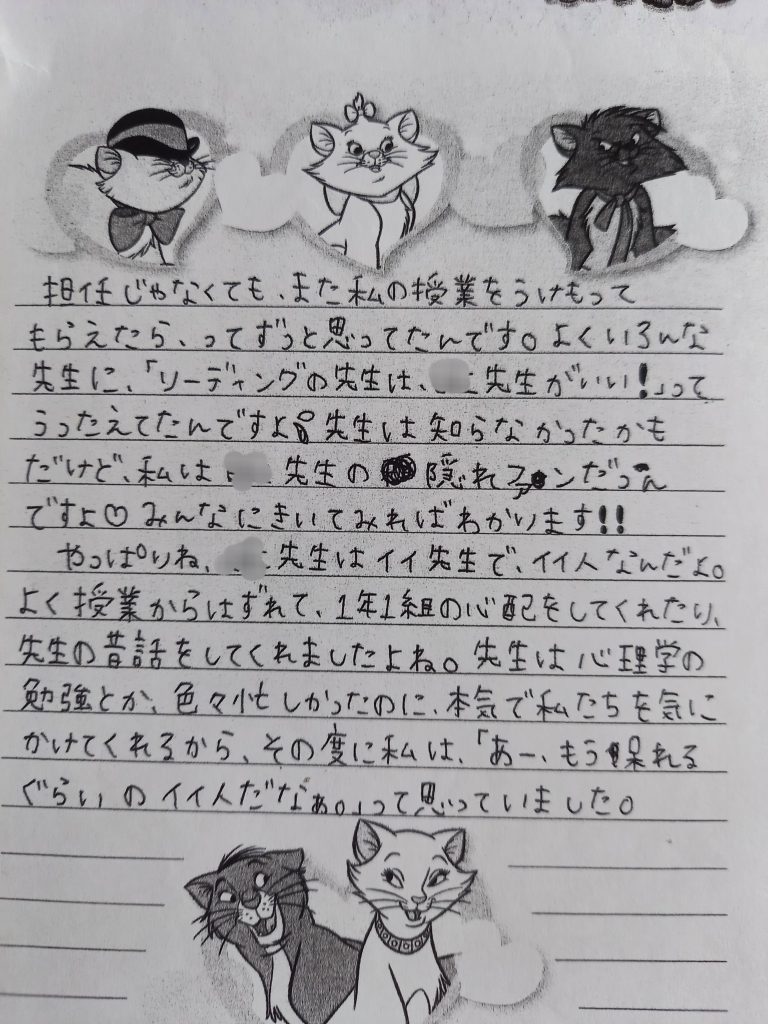 担任じゃなくても、また私の授業をうけもって
もらえたら、ってずっと思ってたんです。よくいろんな
先生に、「リーディングの先生は、先生がいい!」って
うったえてたんですよ!先生は知らなかったかも
だけど、私は先生の隠れファンだったん
ですよ♡みんなにきいてみればわかります!!
やっぱりね、先生はイイ先生で、イイ人なんだよ。
よく授業からはずれて、1年1組の心配をしてくれたり、
先生の昔話をしてくれましたよね。先生は心理学の
勉強とか、色々忙しかったのに、本気で私たちを気に
かけてくれるから、その度に私は、「あー、もう呆れる
ぐらいのイイ人だなぁ。」って思っていました。